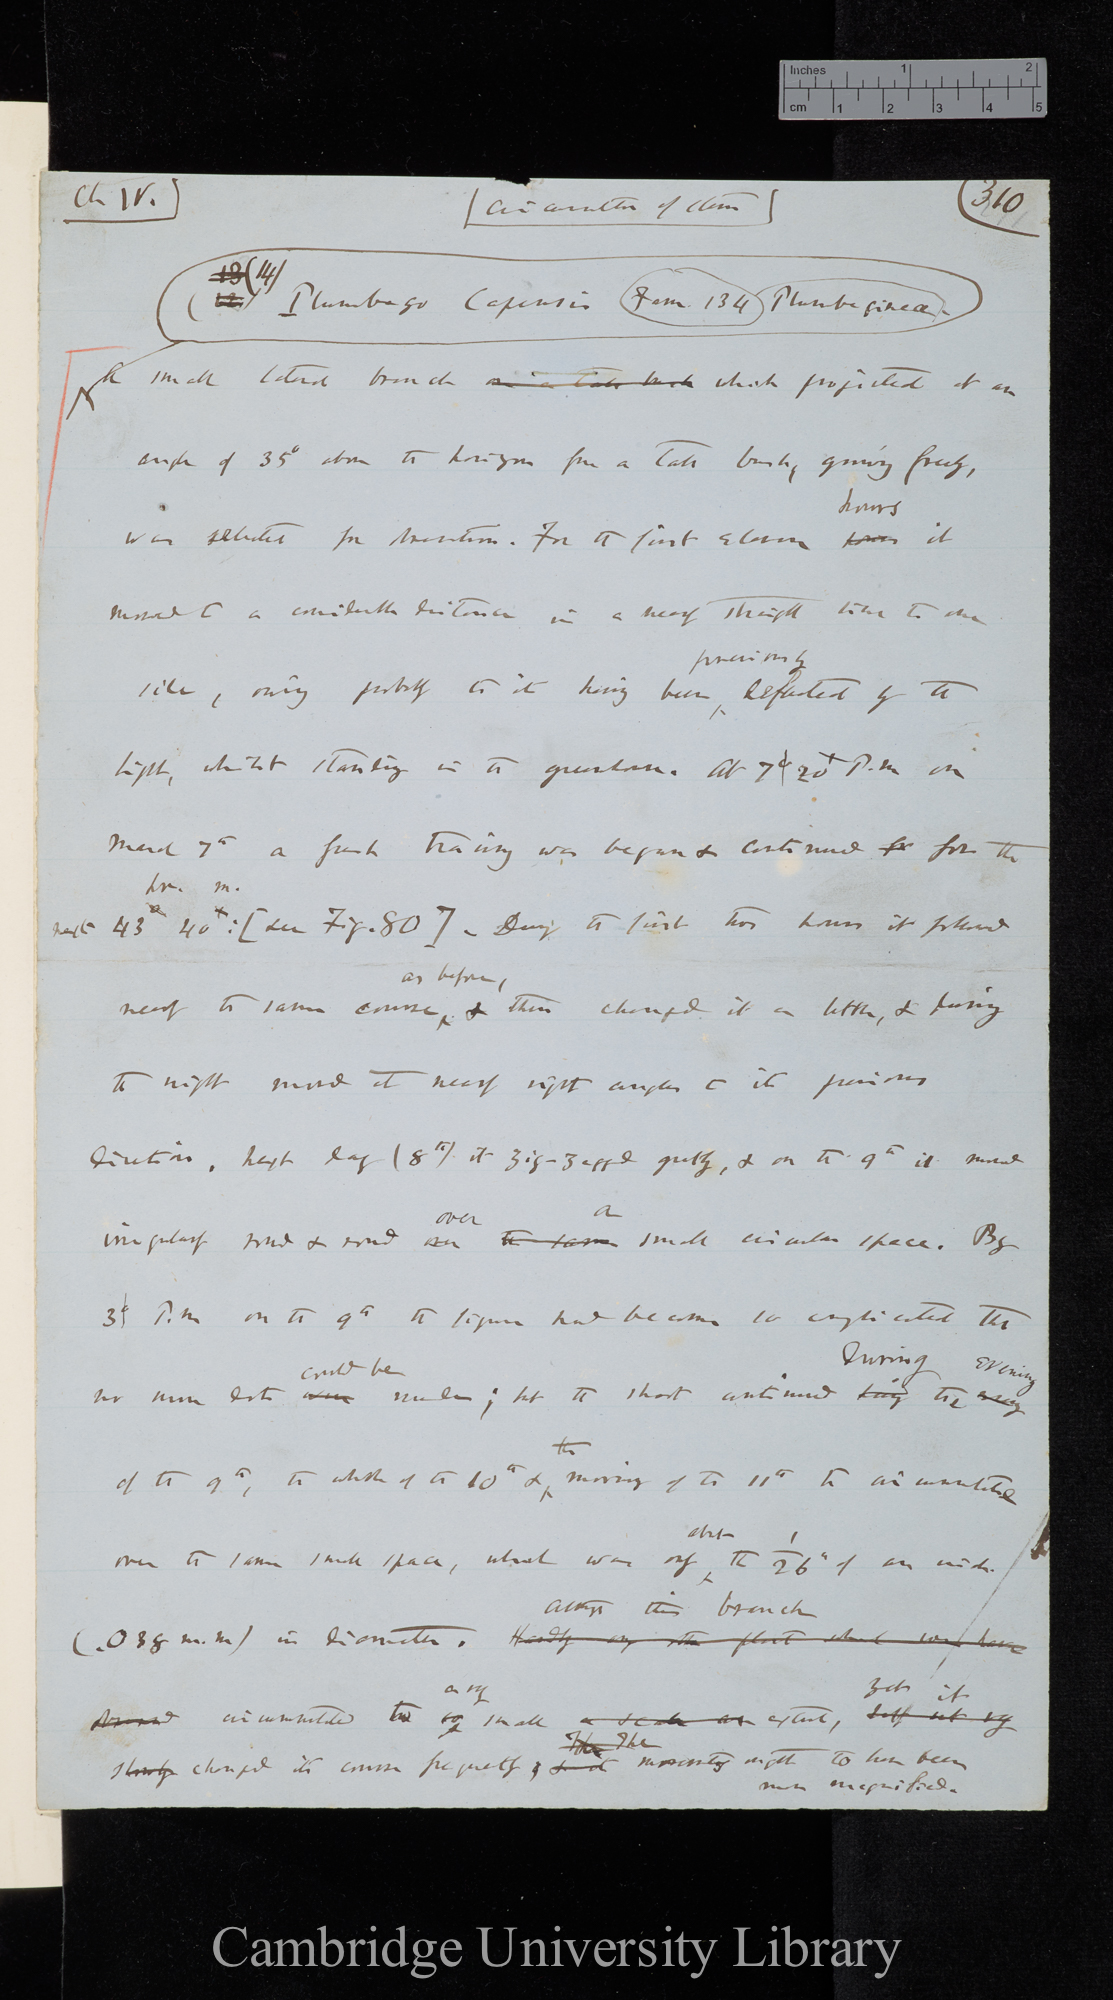 Inches 1 2
cm 1 2 3 4 5
Ch IV.]
[Circumnutation of stem]
(310
13 (14)
(12) Plumbago Capensis Fam. 134 Plumbagineæ.
A small lateral branch on a tall bush which projected at an
angle of 35° above the horizon from a tall bush, growing freely,
hours
was selected for observation. For the first eleven hours it
moved to a considerable distance in a nearly straight line to one
previously
side, owing probably to its having been deflected by the
light, whilst standing in the greenhouse. At 7° 20' P.m on
March 7th a fresh tracing was begun & continued for for the
hr. m.
next 43 40: [see Fig. 80]. During the first two hours it followed
as before,
nearly the same course, & then changed it a little, & during
the night moved at nearly right angles to its previous
direction. Next day (8th) it zig-zagged greatly, & on the 9th it moved
over a
irregularly round & round over the same small circular space. By
3° P.m on the 9th the figure had become so complicated that
could be during evening
no more dots were made; but the shoot continued during the evening
the
of the 9th, the whole of the 10th & morning of the 11th to circumnutate
about
over the same small space, which was only the 1/26" of an inch
Although this branch
(.038 m.m) in diameter. Hardly any other plant which we have
a very yet it
observed circumnutated to so small a scale as extent,
changed its course frequently; The The
movements ought to have been
more magnified.
Cambridge University Library